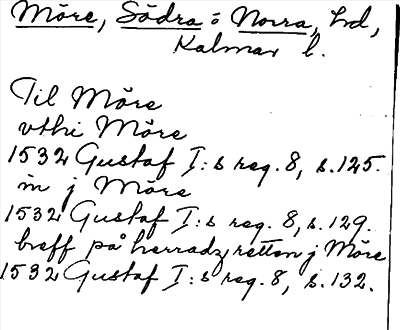 Möre, Södra o Norra, hd,
Kalmar l.
Til Möre
vthi Möre
1532 Gustaf I:s reg. 8, s. 125.
in j Möre
1532 Gustaf I:s reg. 8, s. 129.
breff på herradz retten j Möre
1532 Gustaf I:s reg. 8, s. 132.